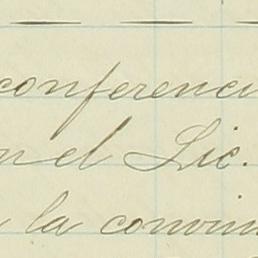 conferenci
n el Lic.
la convin